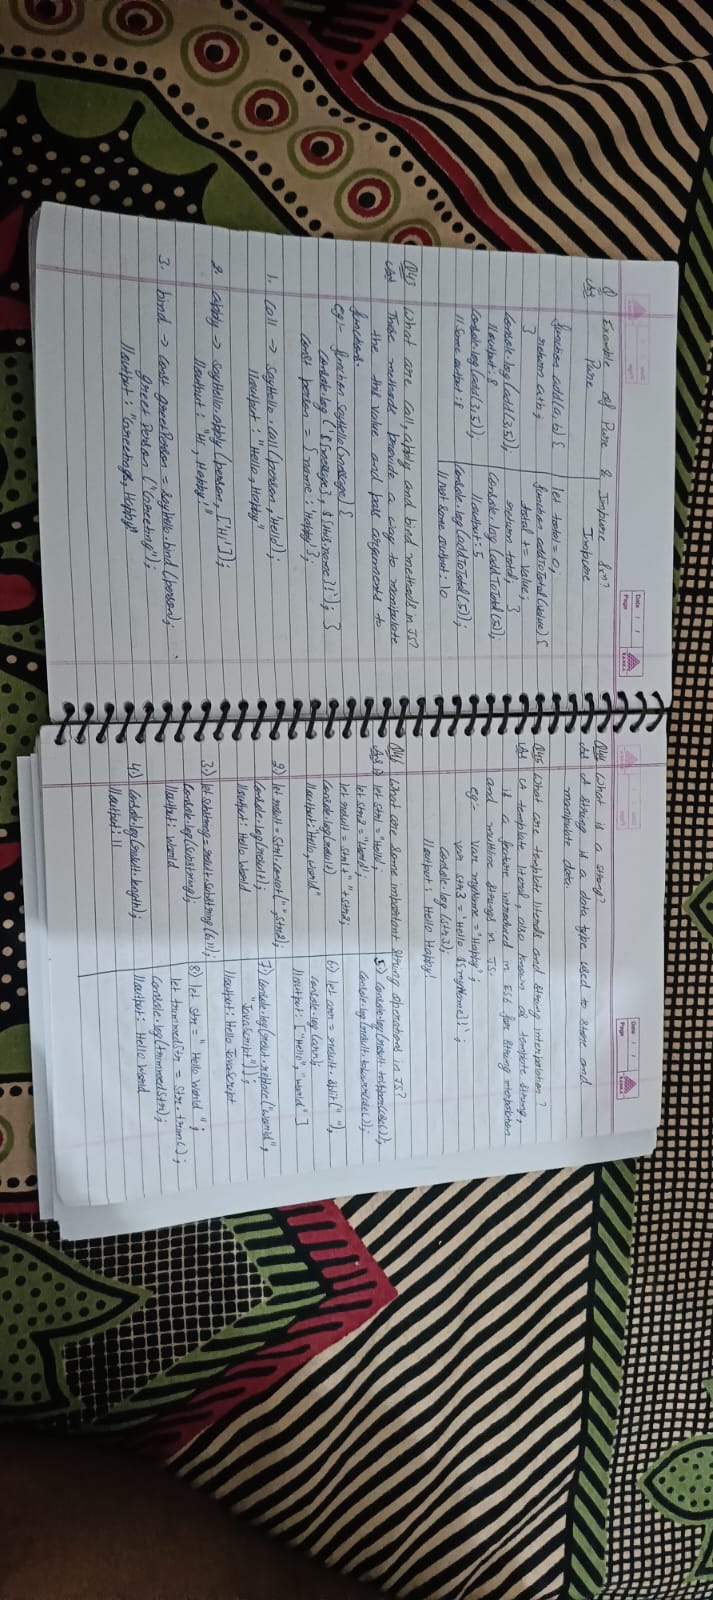 Date / /
Page
SANKA
Q Example of Pure & Impure fxn?
Ans Pure
function add(a,b) {
return a+b;
}
console.log (add(3,5));
// output: 8
console.log(add(3,5));
// Same output: 8
Impure
let total = 0;
function addToTotal(value) {
total += value;
return total; }
console.log (addToTotal(5));
// output: 5
console.log(addToTotal(5));
// not same output: 10
Q43 What are call, apply and bind methods in JS?
Ans These methods provide a way to manipulate
the this value and pass arguments to
function.
eg:- function sayHello(message) {
console.log (`${message}, ${this.name}!`); }
const person = {name: 'Happy'};
1. call → sayHello.call(person, 'Hello');
// output: "Hello, Happy"
2. apply → sayHello.apply (person, ['Hi']);
// output: "Hi, Happy!"
3. bind → const greetPerson = sayHello.bind (person);
greet Person ('Greeting');
// output: "Greeting, Happy"
Date / /
Page
Q44 What is a string?
Ans A string is a data type used to store and
manipulate data.
Q45 What are template literals and string interpolation?
Ans A template literal, also known as template string,
is a feature introduced in ES6 for string interpolation
and multiline strings in JS.
eg:- var myName = "Happy";
var str3 = `Hello ${myName}!`;
console.log (str3);
// output: Hello Happy!
Q46 What are some important string operations in JS?
Ans 1) let str1 = "Hello";
let str2 = "World";
let result = str1 + " " + str2;
console.log(result)
// output: "Hello, World"
2) let result = str1.concat(" ", str2);
console.log(result);
// output: Hello World
3.) let substring = result.substring(6,11);
console.log(substring);
// output: World
4.) console.log(result.length);
// output: 11
5.) console.log(result.toUpperCase());
console.log(result.toLowerCase());
6) let arr = result.split(" ");
console.log (arr);
// output: ["Hello", "World"]
7) console.log(result.replace("World",
"JavaScript"));
// output: Hello JavaScript
8) let str = " Hello World ";
let trimmedStr = str.trim();
console.log(trimmedStr);
// output: Hello World